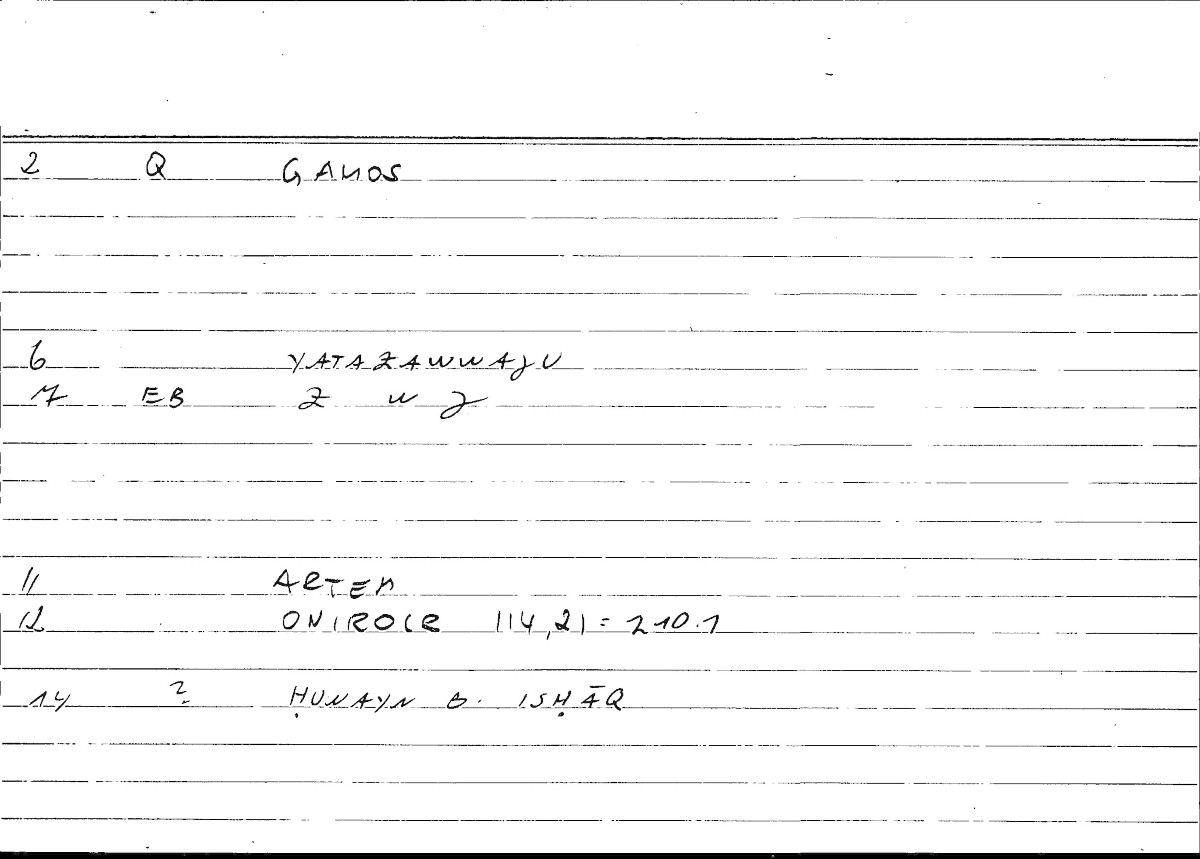 2 Q GAMOS
6 YATAZAWWAJU
7 EB Z W J
11 ARTEM
12 ONIROCR 114,21 = 210.1
14 ? ḤUNAYN B. ISḤĀQ